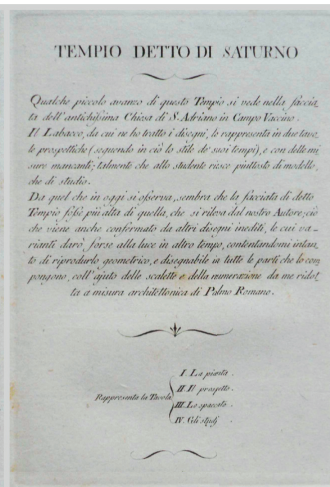 TEMPIO DETTO DI SATURNO
Qualche piccolo avanzo di questo Tempio si vede nella faccia-
ta dell'antichissima Chiesa di S. Adriano in Campo Vaccino.
Il Labacco, da cui ne ho tratto i disegni, lo rappresenta in due tavo-
le prospettiche (seguendo in ciò lo stile de' suoi tempi), e con delle mi-
sure mancanti; talmente che allo studente riesce piuttosto di modello,
che di studio.
Da quel che in oggi si osserva, sembra che la facciata di detto
Tempio fosse più alta di quella, che si rileva dal nostro Autore; ciò
che viene anche confermato da altri disegni inediti, le cui va-
rianti darò, forse alla luce in altro tempo, contentandomi intan-
to di riprodurlo geometrico, e disegnabile in tutte le parti che lo com-
pongono, coll'ajuto delle scalette e della numerazione da me ridot-
ta a misura architettonica di Palmo Romano.
I. La pianta.
II. Il prospetto.
Rappresenta la Tavola
III. Lo spaccato.
IV. Gli studj